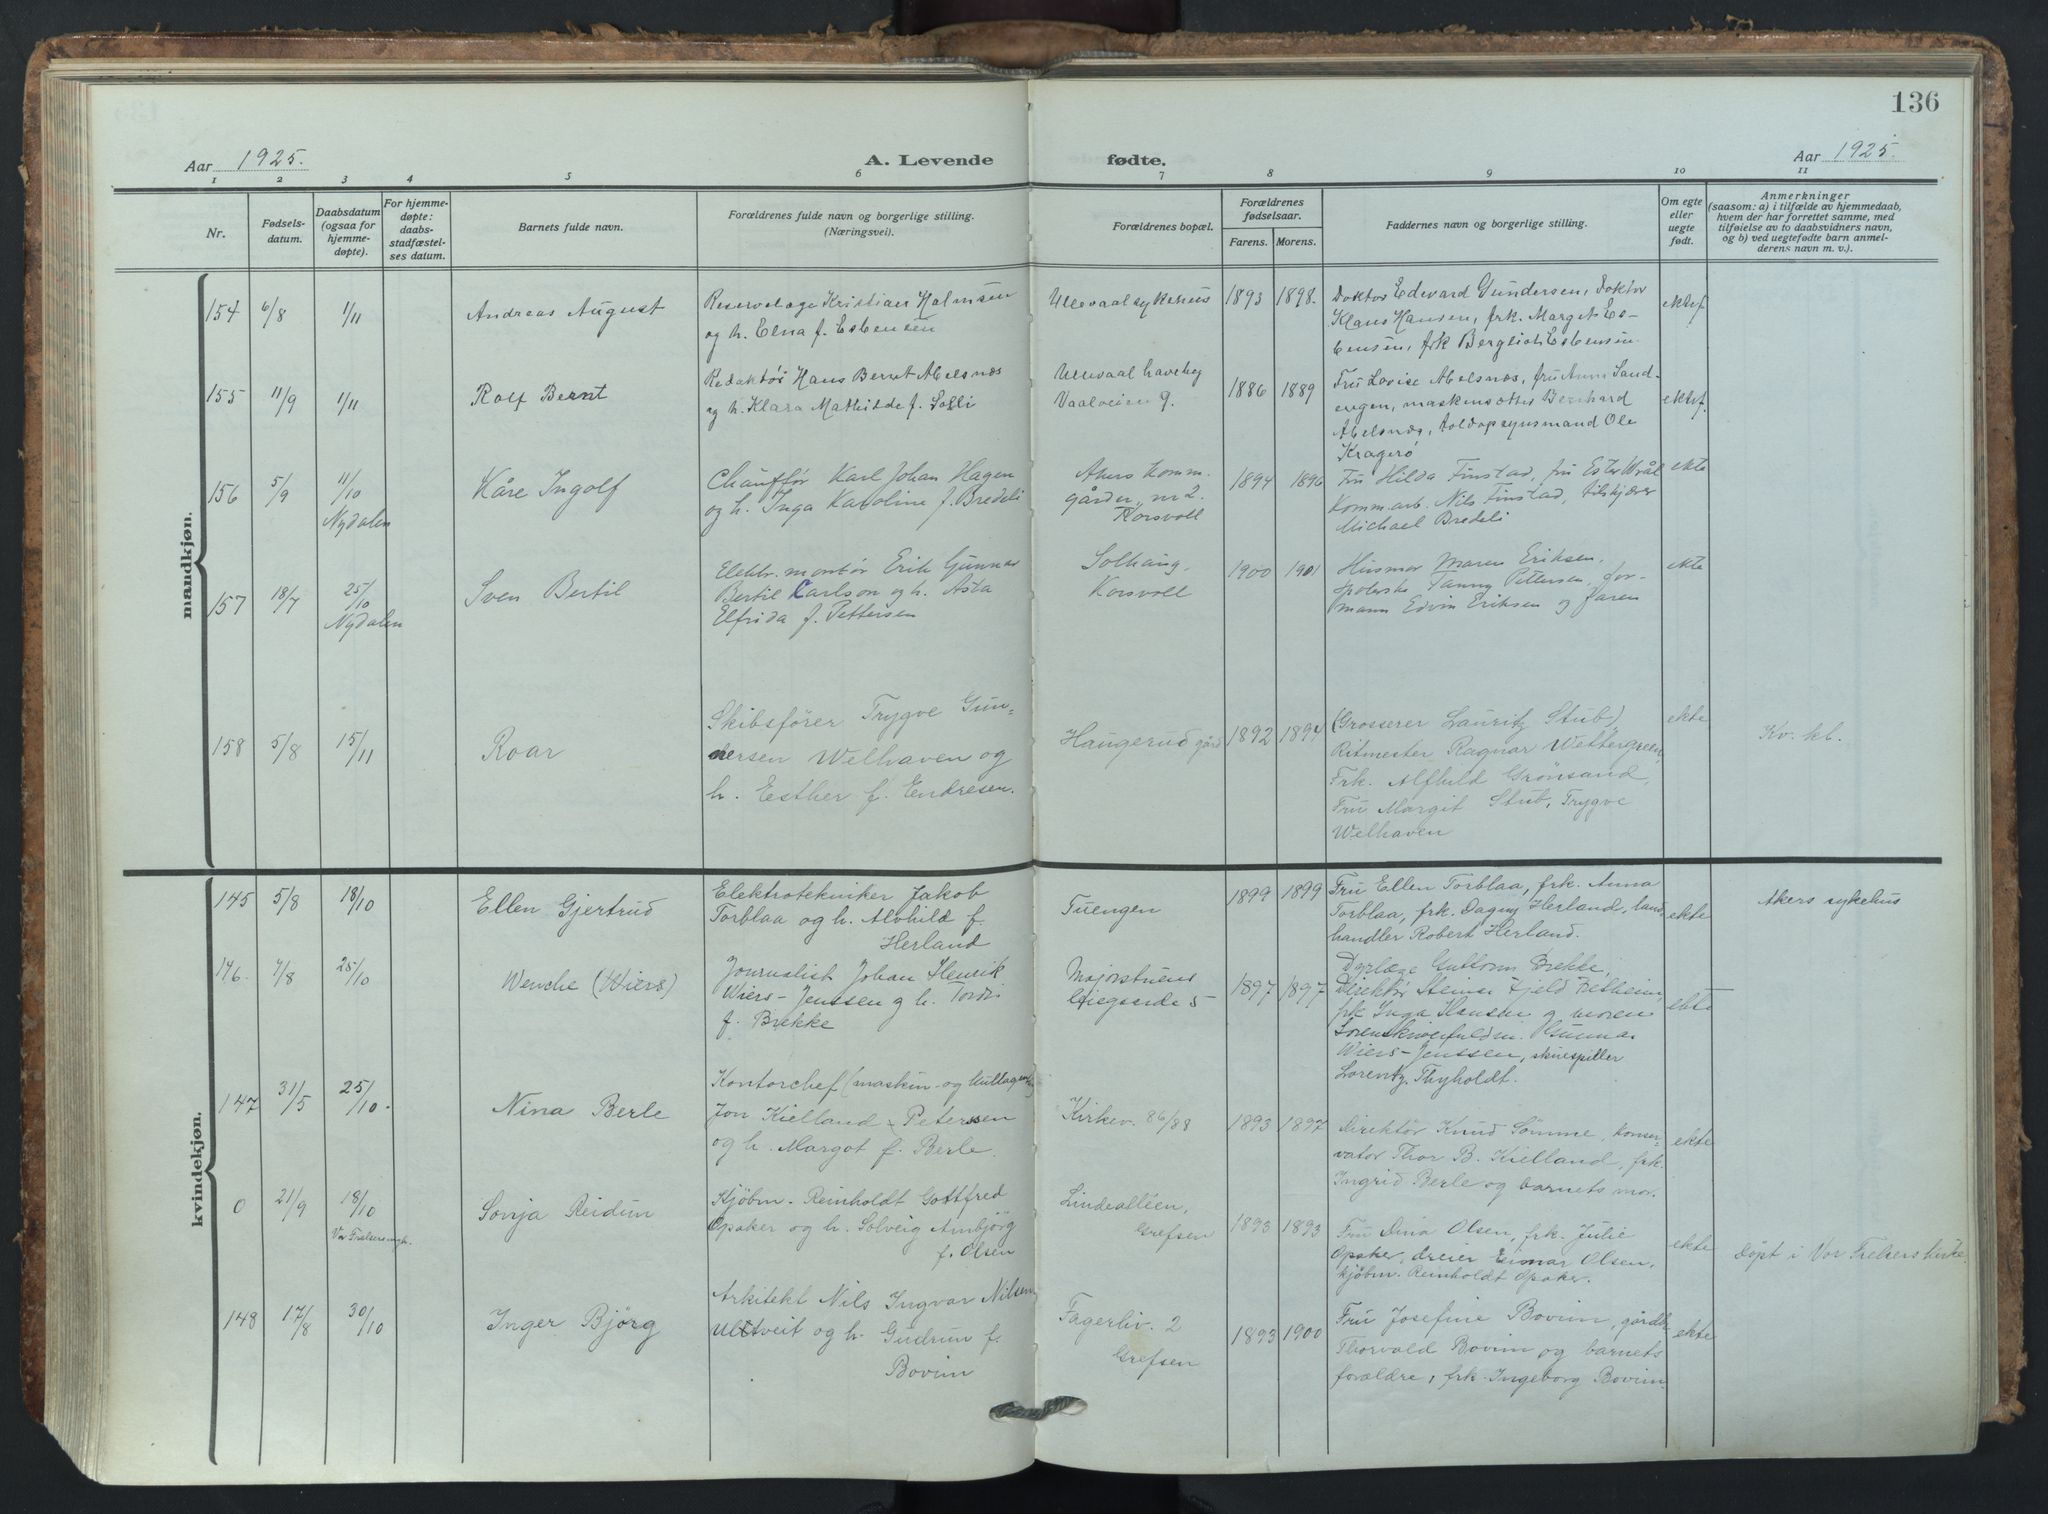 136
Aar 1925.
A. Levende
fødte.
Aar 1925.
1 2 3 4 5 6 7 8 9 10 11
Nr.
Fødsels-
datum.
Daabsdatum
(ogsaa for
hjemme-
døpte).
For hjemme-
døpte:
daabs-
stadfæstel-
ses datum.
Barnets fulde navn.
Forældrenes fulde navn og borgerlige stilling.
(Næringsvei).
Forældrenes bopæl.
Forældrenes
fødselsaar.
Farens. Morens.
Faddernes navn og borgerlige stilling.
Om egte
eller
uegte
født.
Anmerkninger
(saasom: a) i tilfælde av hjemmedaab,
hvem der har forrettet samme, med
tilføielse av to daabsvidners navn,
og b) ved uegtefødte barn anmel-
derens navn m. v.).
mandkjøn.
154 6/8 1/11
Andreas August
Reservelæge Kristian Halmsen
og h. Elna f. Esbensen
Ullevaal sykehus
1893 1898.
Doktor Edward Gundersen, Doktor
Klaus Hansen, frk. Margit Es-
bensen, frk Bergliot Esbensen.
ektef.
155 11/9 1/11
Rolf Bernt
Redaktør Hans Bernt Abelsnæs
og h. Klara Mathilde f. Solli
Ullevaal haveby
Vaalveien 9.
1886 1889
Fru Lovise Abelsnæs, fru Anna Sand-
engen, maskinsætter Bernhard
Abelsnæs, toldopsynsmand Ole
Kragerø
ektef.
156 5/9 11/10
Nydalen
Kåre Ingolf
Chauffør Karl Johan Hagen
og h. Inga Karoline f. Bredeli
Akers komm.
gårder, nr 2.
Korsvoll
1894 1896
Fru Hilda Finstad, fru Ester Wrål
Kommarb. Nils Finstad, tilskjærer
Michael Bredeli
ekte
157 18/7 25/10
Nydalen
Sven Bertil
Elektr. montør Erik Gunnar
Bertil Carlson og h. Asta
Elfrida f. Pettersen
Solhaug,
Korsvoll
1900 1901
Husmor Maren Eriksen,
spolerske Fanny Pettersen, for-
mann Edvin Eriksen og faren
ekte
158 5/8 15/11
Roar
Skibsfører Trygve Gun-
nersen Welhaven og
h. Esther f. Endresen.
Haugerud gård
1892 1894
(Grosserer Lauritz Stub)
Ritmester Ragnar Wettergreen,
Frk. Alfhild Grönsand,
Fru Margit Stub, Trygve
Welhaven
ekte
Kv. kl.
kvindekjøn.
145 5/8 18/10
Ellen Gjertrud
Elektrotekniker Jakob
Torblaa og h. Alvhild f.
Herland
Tuengen
1899 1899
Fru Ellen Torblaa, frk. Anna
Torblaa, frk. Dagny Herland, land-
handler Robert Herland.
ekte
Akers sykehus
146. 7/8 25/10
Wenche (Wiers)
Journalist Johan Henrik
Wiers-Jenssen og h. Tordis
f. Brekke
Majorstuens
5
1897 1897
Dyrlæge Guttorm Brekke,
Direktør Steinar Fjeld Tetheim,
frk Inga Hansen og moren
Gunnar
Wiers-Jenssen, skuespiller
Lorentz Thyholdt.
ekte
147 31/5 25/10.
Nina Berle
Kontorchef (maskin- og kullagent)
Jon Kielland-Peterssen
og h. Margot f. Berle.
Kirkev. 86/88
1893 1897
Direktør Knud Sömme, konser-
vator Thor B. Kielland, frk.
Ingrid Berle og barnets mor.
ekte
0 21/9 18/10
Sonja Reidun
Kjöbm. Reinholdt Gottfred
Opaker og h. Solveig Arnbjörg
f. Olsen
Lindealléen,
Grefsen
1893 1893
Fru Dina Olsen, frk. Julie
Opaker, dreier Einar Olsen,
kjöbm. Reinholdt Opaker.
ekte
döpt i Vor Frelsers kirke
148 17/8 30/10
Inger Bjørg
Arkitekt Nils Ingvar Nilsen
Ulltveit og h. Gudrun f.
Bovim
Fagerliv. 2
Grefsen
1893 1900
Fru Josefine Bovim, gårdbr.
Thorvald Bovim og barnets
forældre, frk. Ingeborg Bovim.
ekte